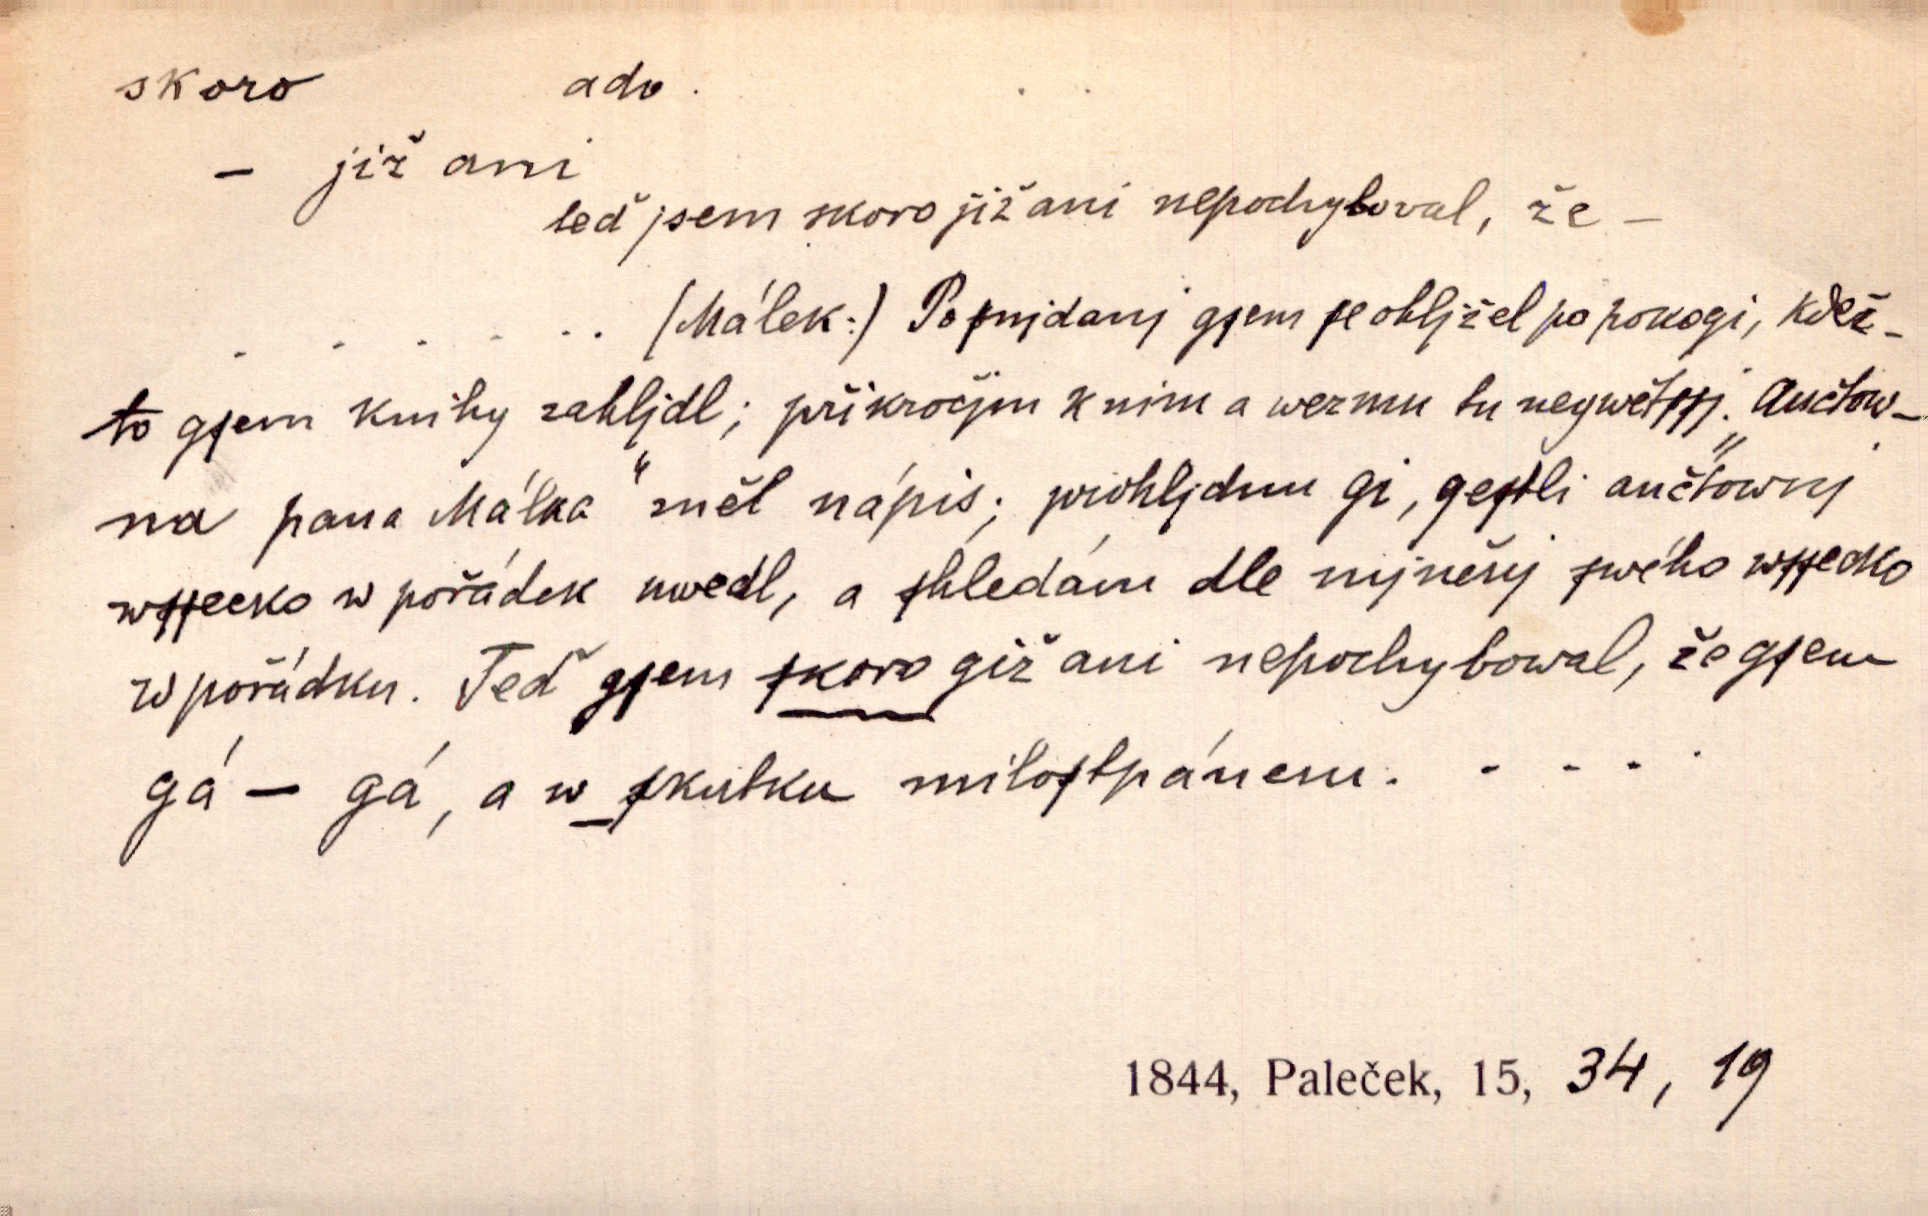 skoro adv.
- již ani
teď jsem skoro již ani nepochyboval, že -
. . . . . . (Málek:) Po ſnjdanj gſem ſe ohljžel po pokogi, kdež-
to gſem knihy zahljdl; přikročjm k nim a wezmu tu neywětſſj. „Aučtow-
na pana Málka“ měl nápis; prohljdnu gi, geſtli aučtownj
wſſecko w pořádek uwedl, a ſhledám dle mjněnj ſwého wſſecko
w pořádku. Teď gſem ſkoro giž ani nepochybowal, že gſem
gá - gá, a w ſkutku miloſtpánem. . . . .
1844, Paleček, 15, 34, 19